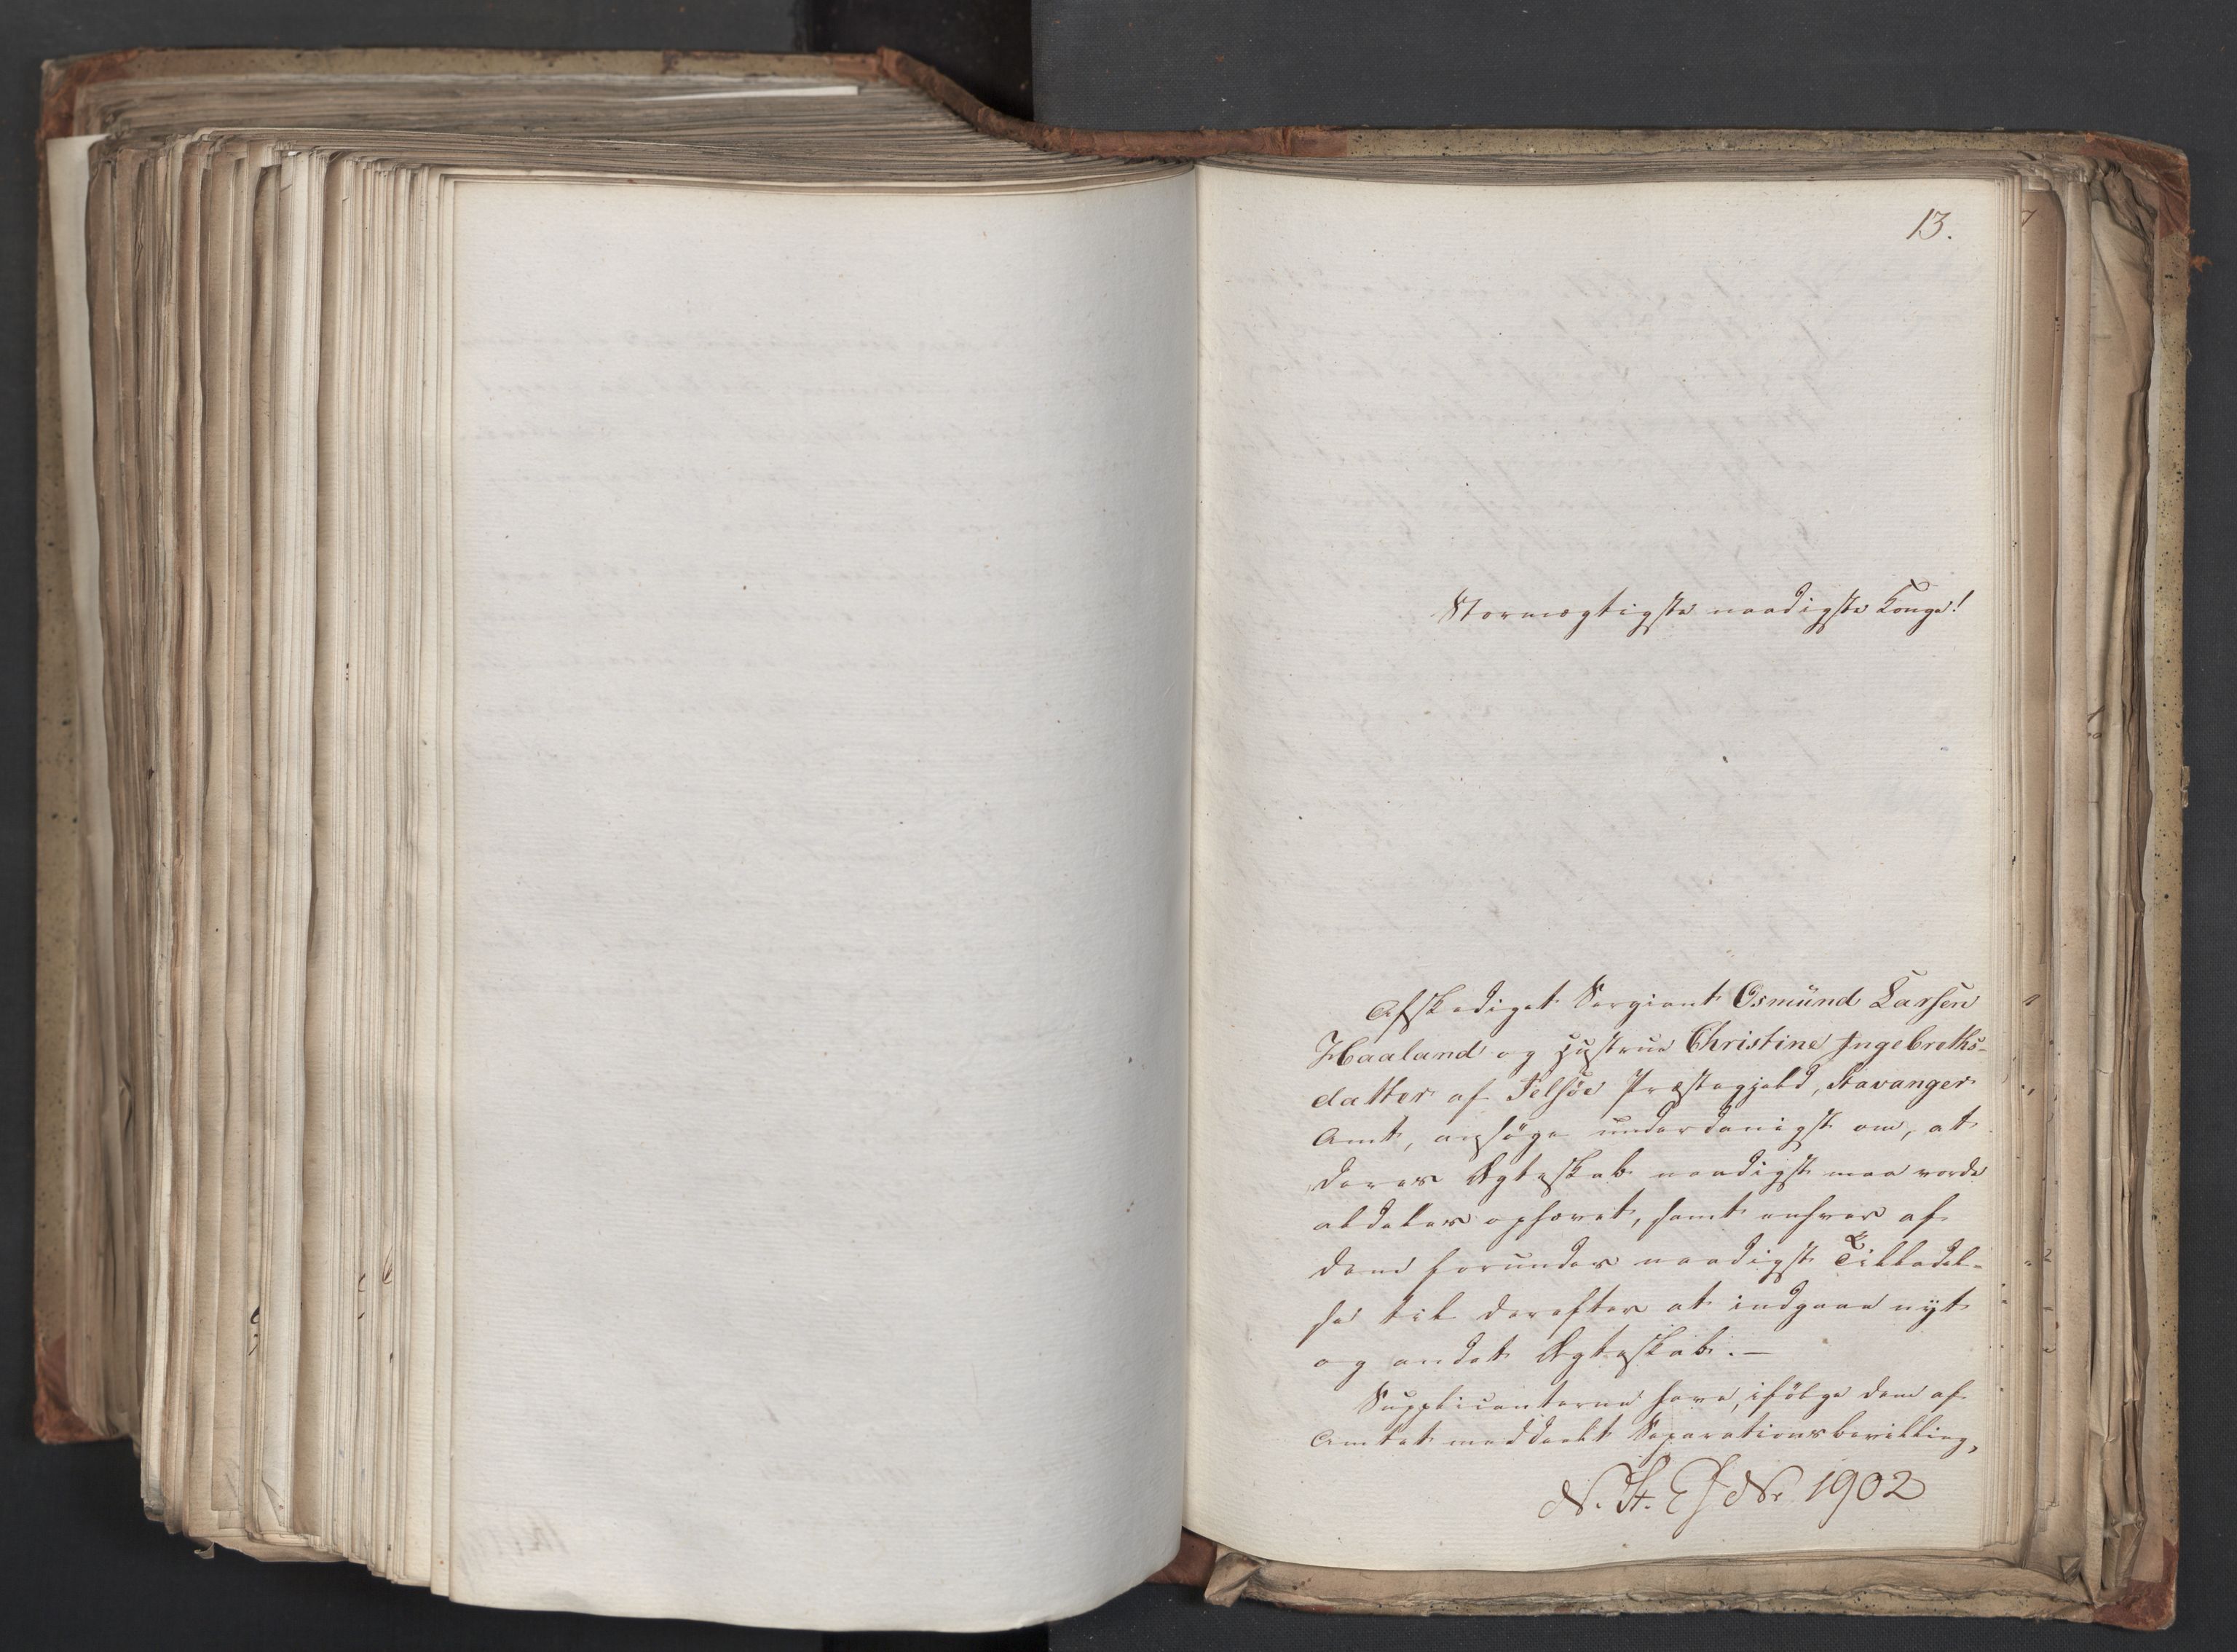 13.
Stormægtigste naadigste Konge!
Afskediget Sergiant Osmünd Larsen
Haaland og Hustrue Christine Ingebreths-
datter af Jelsøe Præstegjæld, Stavanger
Amt, ansøge underdanigst om, at
deres Ægteskab naadigst maa vorde
aldeles ophævet, samt enhver af
dem forundes naadigst Tilladel-
se til derefter at indgaae nyt
og andet Ægteskab.—
Supplicanterne have, ifølge dem af
Amtet meddeelt Separationsbevilling,
N. St. E J No 1902